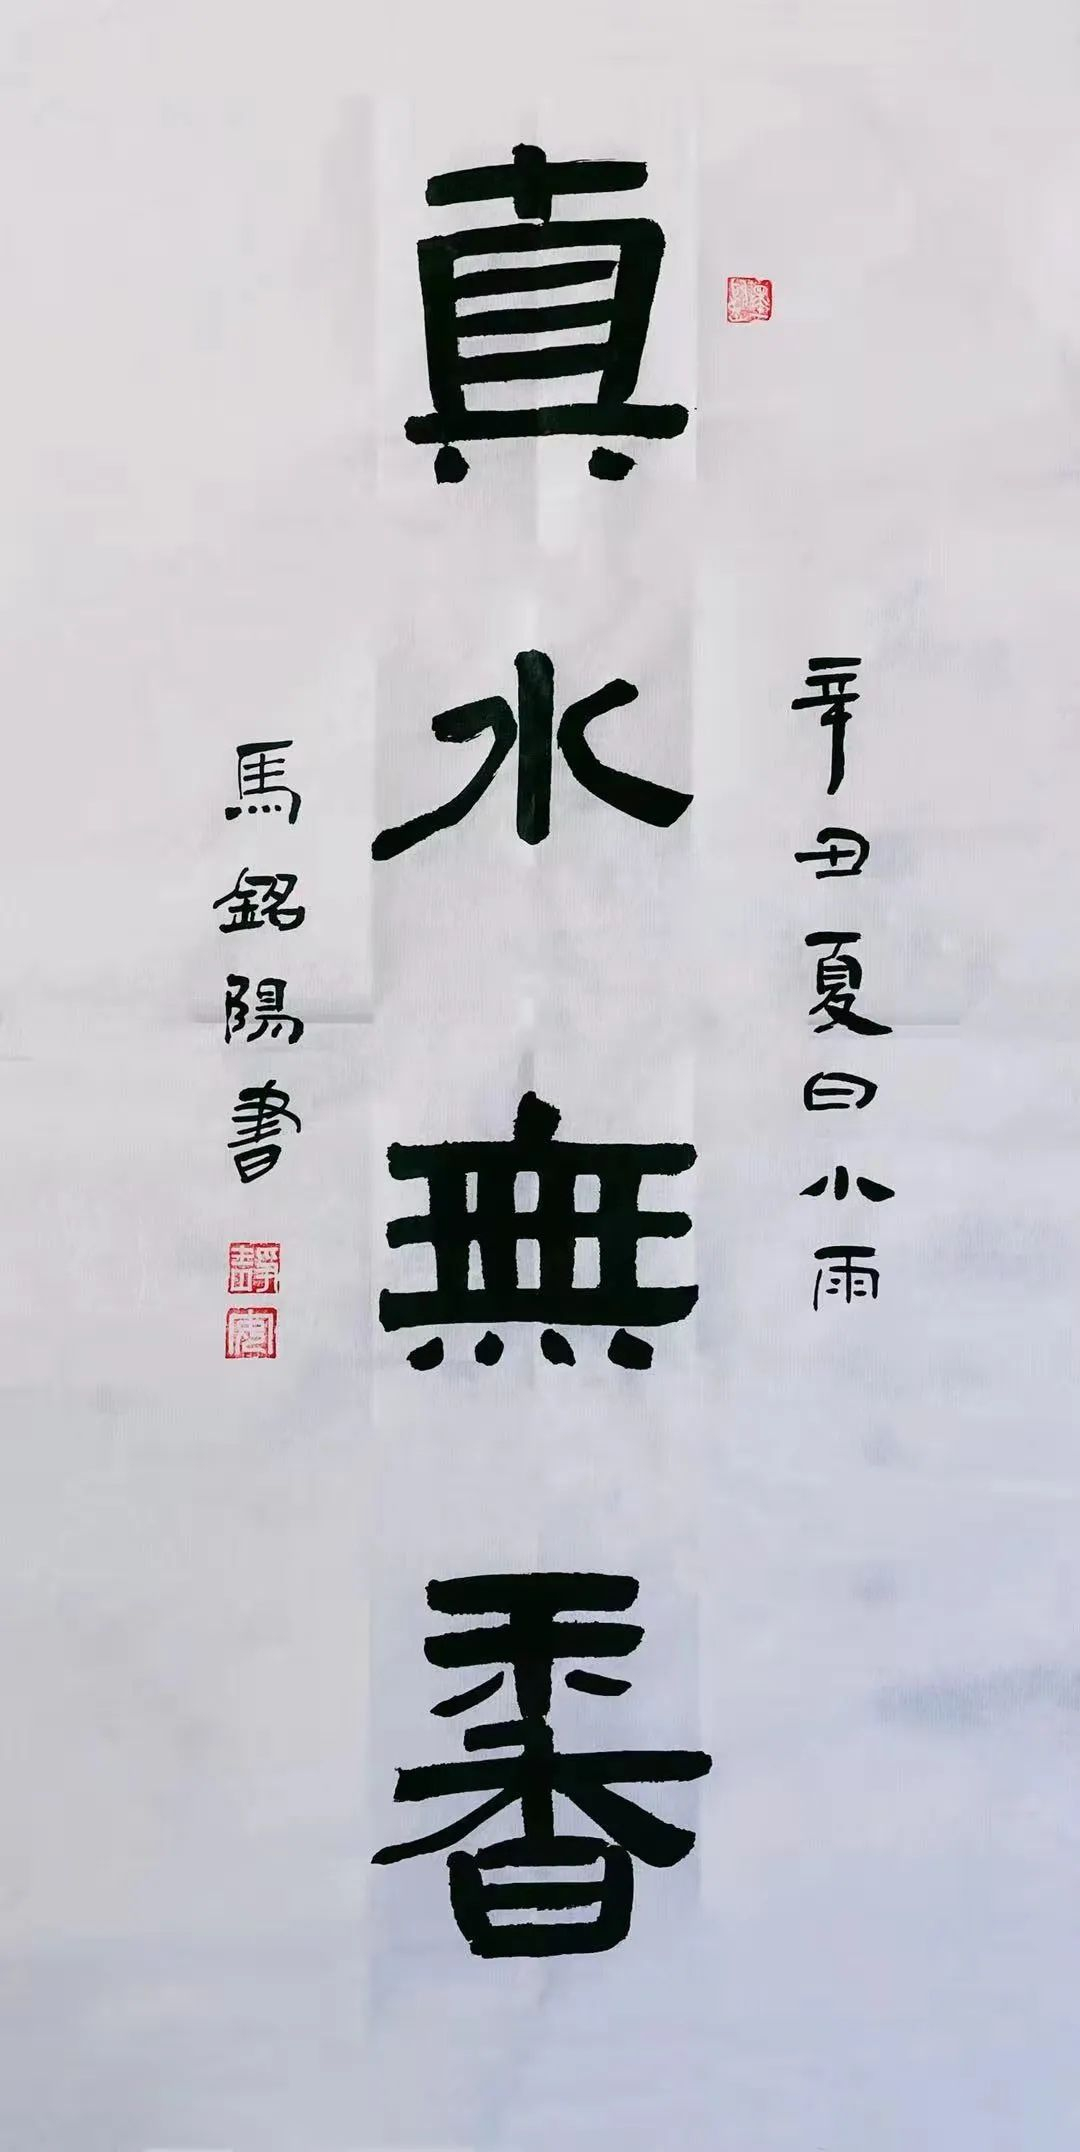 真水無香
辛丑夏日小雨
馬銘陽書